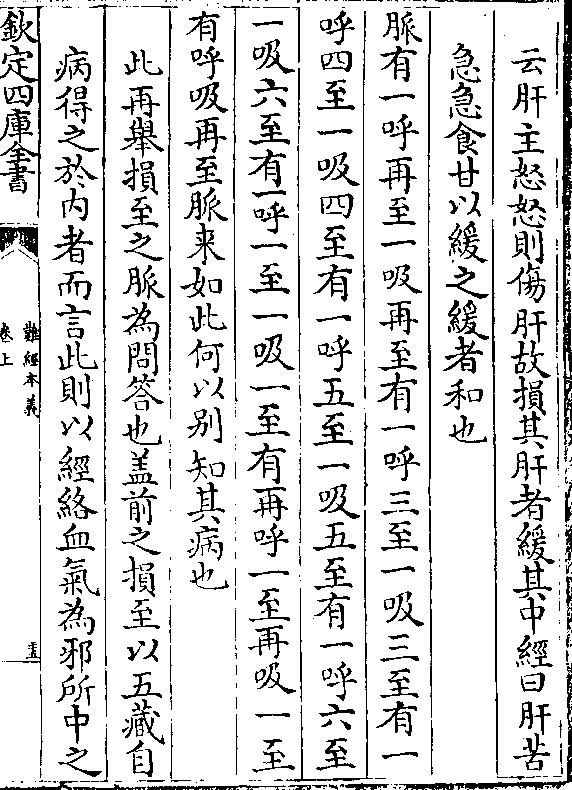 云肝主怒怒則傷肝故損其肝者緩其中經曰肝苦
急急食甘以緩之緩者和也
脈有一呼再至一吸再至有一呼三至一吸三至有一
呼四至一吸四至有一呼五至一吸五至有一呼六至
一吸六至有一呼一至一吸一至有再呼一至再吸一至
有呼吸再至脈来如此何以别知其病也
此再舉損至之脈為問答也盖前之損至以五藏自
病得之於内者而言此則以經絡血氣為邪所中之
欽定四庫全書
難經本義
卷上
三五